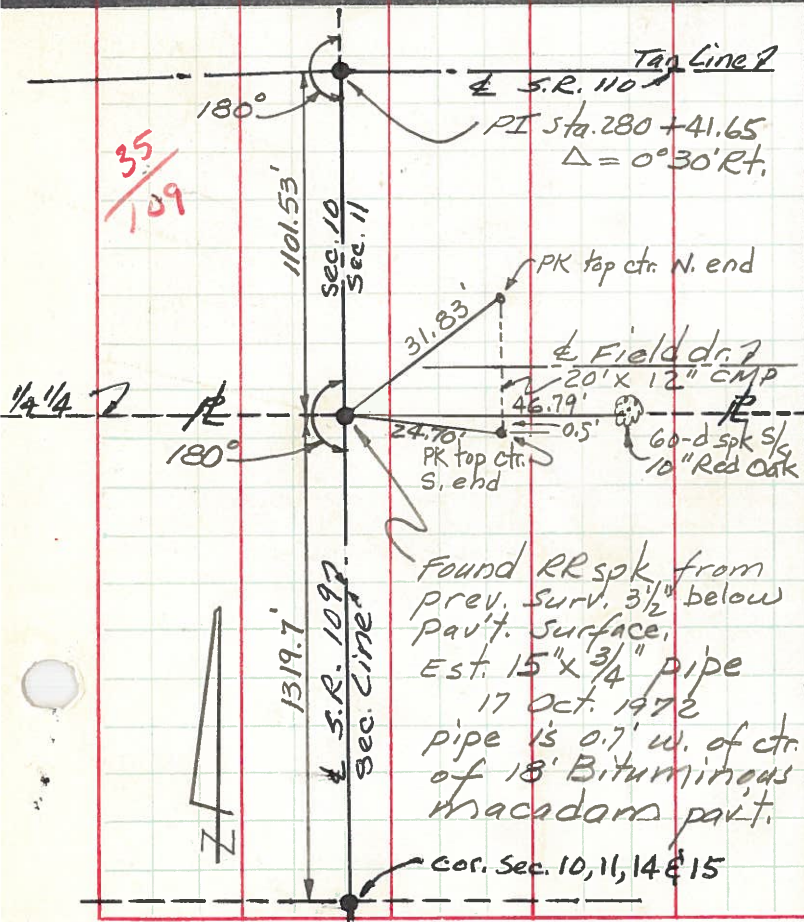 Tan Line
℄ S.R. 110
180°
PI sta. 280 + 41.65
Δ = 0°30' Rt.
35/109
1101.53'
Sec. 10
Sec. 11
PK top ctr. N. end
31.83'
℄ Field dr.
20' x 12" CMP
1/4 1/4
PL
46.79'
PL
180°
24.70'
0.5'
PK top ctr.
S. end
60-d spk S/s
10" Red Oak
Found RR spk from
prev. surv. 3½" below
pav't. surface.
Est. 15" x 3/4" pipe
17 Oct. 1972
pipe is 0.7' w. of ctr.
of 18' Bituminous
macadam pav't.
1319.7'
℄ S.R. 109
Sec. Line
Z
cor. Sec. 10, 11, 14 & 15